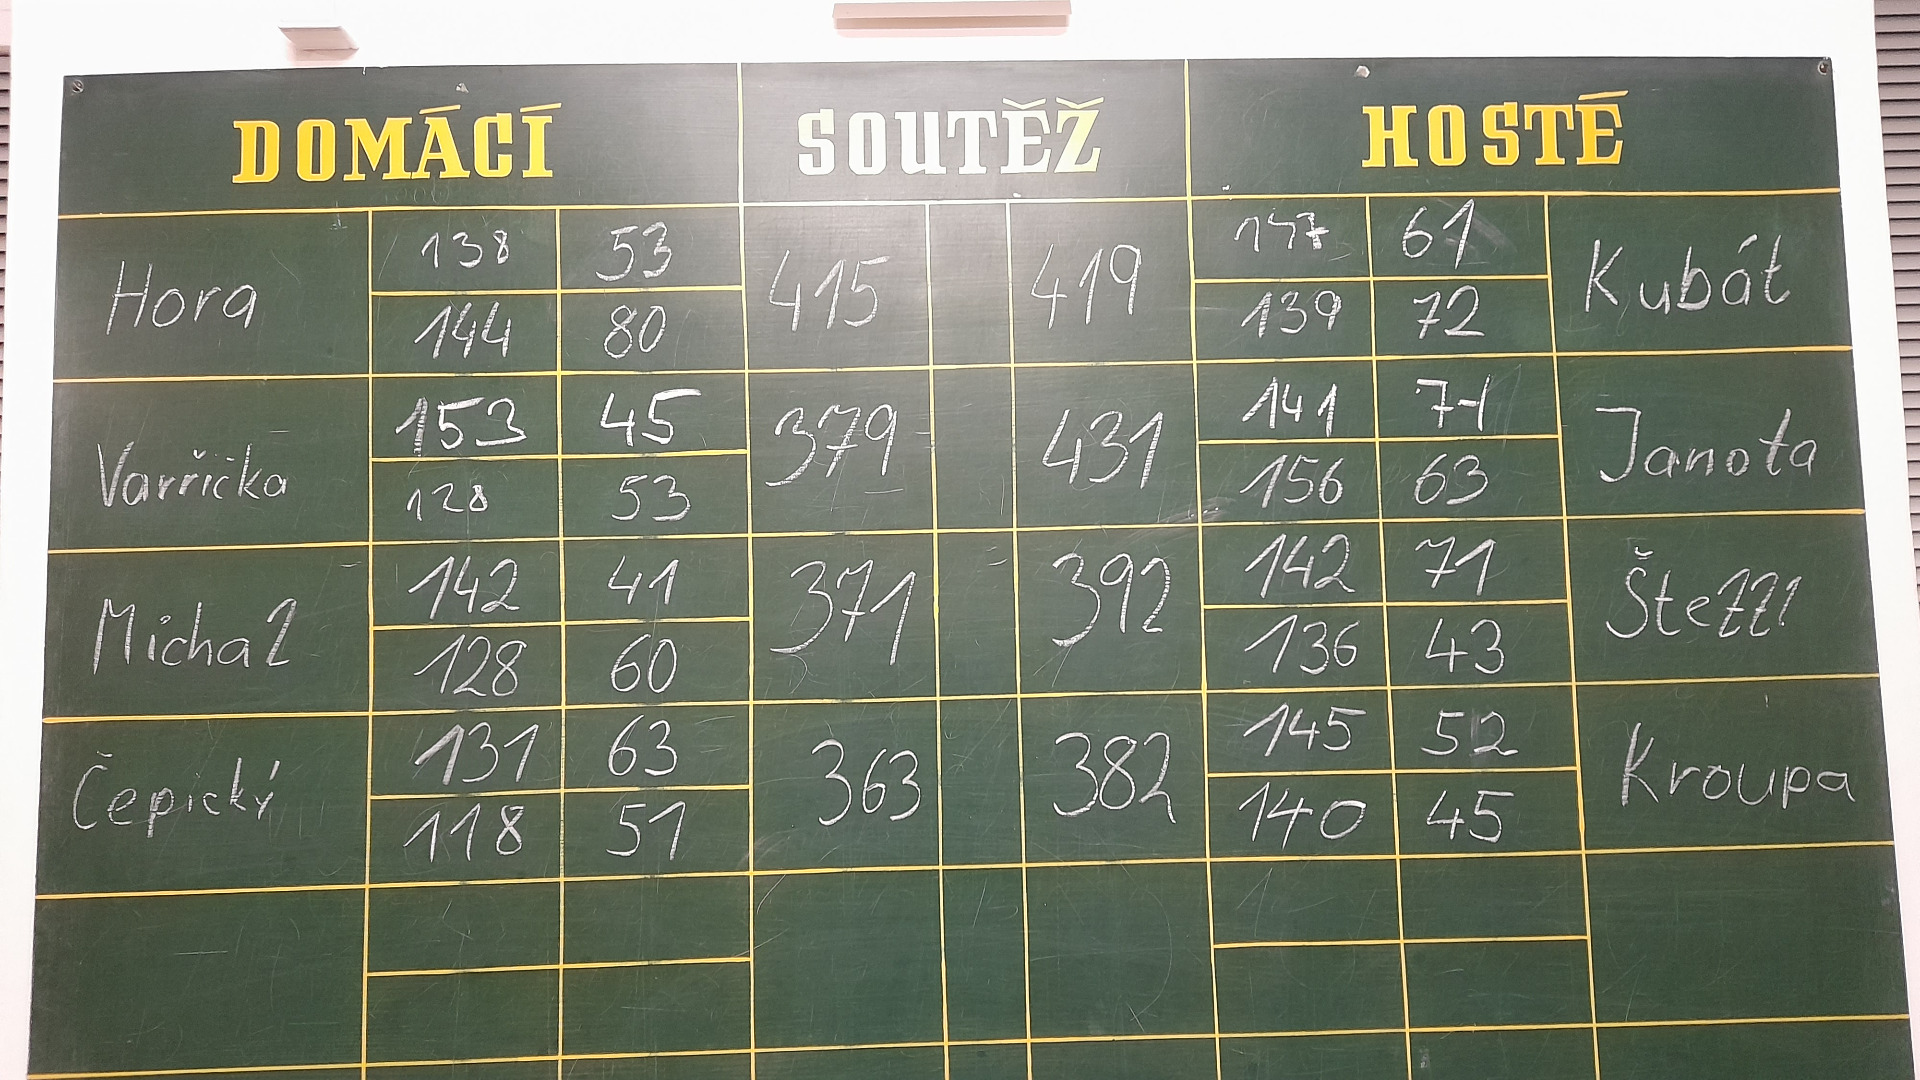 DOMÁCÍ SOUTĚŽ HOSTÉ
Hora 138 53 415 419 147 61 Kubát
144 80 139 72
Vařička 153 45 379 431 141 71 Janota
128 53 156 63
Michal 142 41 371 392 142 71 Štezzl
128 60 136 43
Čepický 131 63 363 382 145 52 Kroupa
118 51 140 45